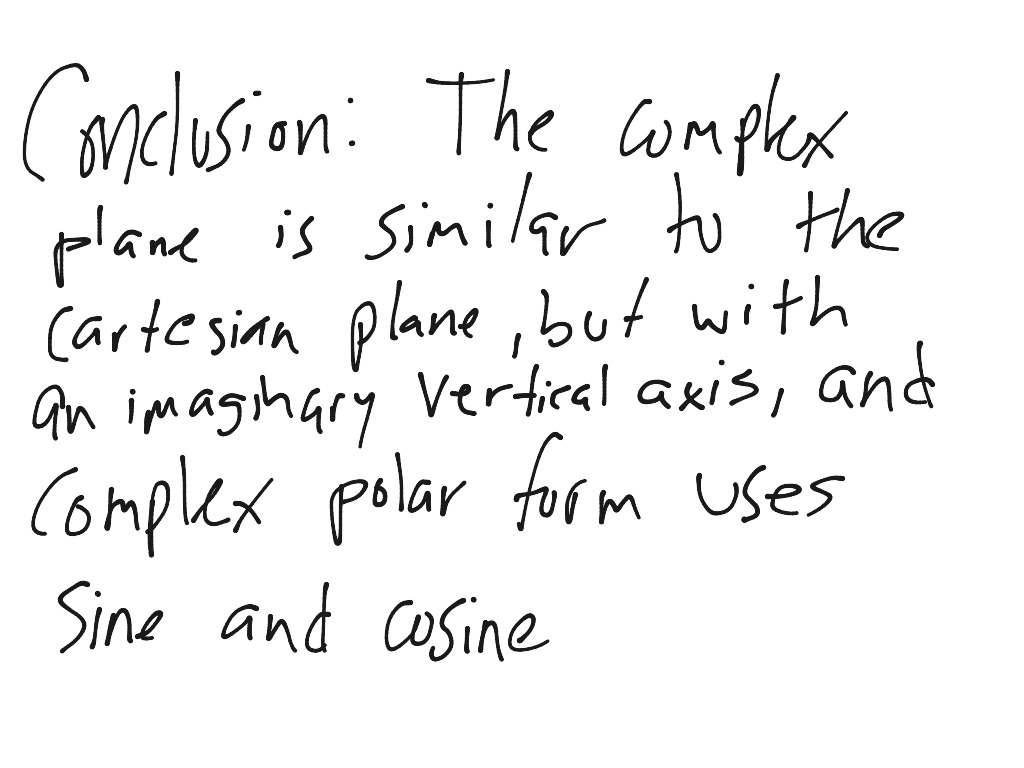 Conclusion: The complex
plane is similar to the
cartesian plane, but with
an imaginary vertical axis, and
complex polar form uses
sine and cosine